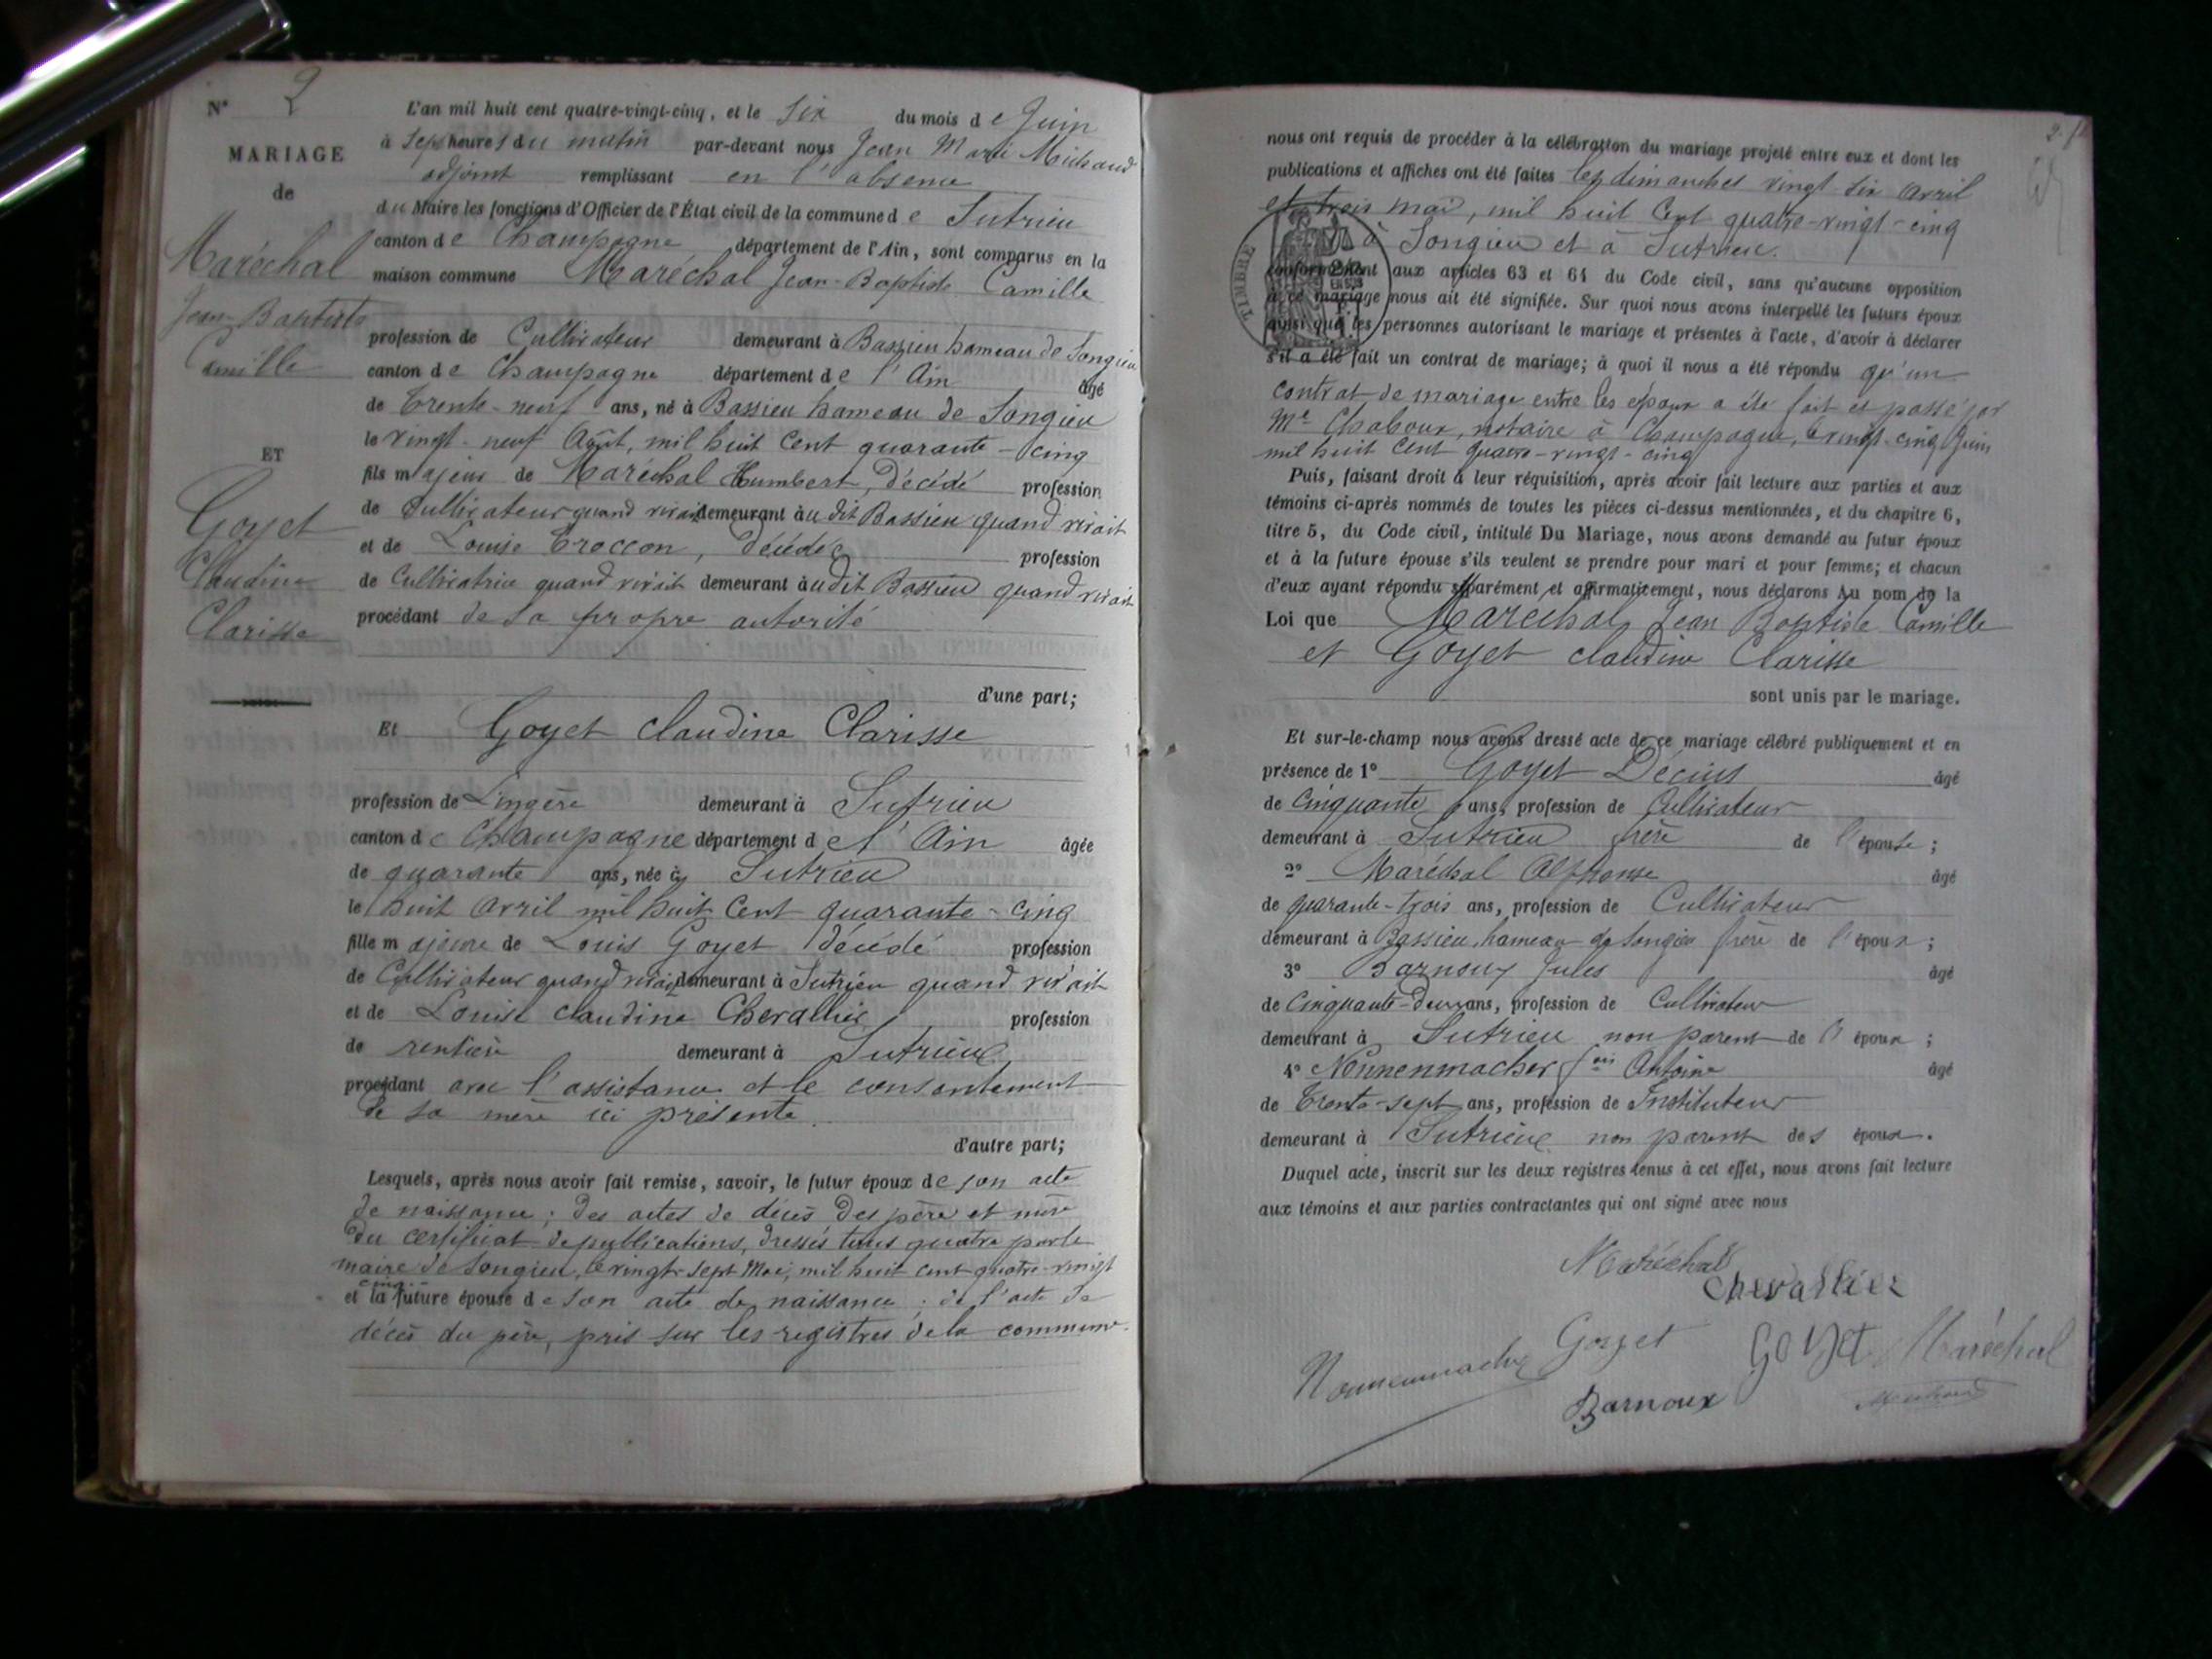 N° 2
MARIAGE
de
Maréchal
Jean-Baptiste
Camille
ET
Goyet
Claudine
Clarisse
L'an mil huit cent quatre-vingt-cinq, et le Six du mois de Juin
à Sept heures du matin par-devant nous Jean Marie Michaud
adjoint remplissant en l'absence
du Maire les fonctions d'Officier de l'État civil de la commune de Sutrieu
canton de Champagne département de l'Ain, sont comparus en la
maison commune Maréchal Jean-Baptiste Camille
profession de Cultivateur demeurant à Bassieu hameau de Songieu
canton de Champagne département de l'Ain âgé
de Trente-neuf ans, né à Bassieu hameau de Songieu
le vingt-neuf Août, mil huit cent quarante-cinq
fils majeur de Maréchal Humbert, Décédé profession
de Cultivateur quand vivait demeurant audit Bassieu quand vivait
et de Louise Troccon, décédée profession
de Cultivatrice quand vivait demeurant audit Bassieu quand vivait
procédant de sa propre autorité
d'une part;
Et Goyet Claudine Clarisse
profession de Lingère demeurant à Sutrieu
canton de Champagne département de l'Ain âgée
de quarante ans, née à Sutrieu
le huit Avril mil huit Cent quarante-cinq
fille majeure de Louis Goyet décédé profession
de Cultivateur quand vivait demeurant à Sutrieu quand vivait
et de Louise Claudine Chevallier profession
de rentière demeurant à Sutrieu
procédant avec l'assistance et le consentement
de sa mère ici présente.
d'autre part;
Lesquels, après nous avoir fait remise, savoir, le futur époux de son acte
de naissance; des actes de décès des père et mère
du certificat de publications, dressés tous quatre par le
maire de Songieu, le vingt-sept Mai, mil huit cent quatre-vingt
cinq
et la future épouse de son acte de naissance; de l'acte de
décès du père, pris sur les registres de la commune.
nous ont requis de procéder à la célébration du mariage projeté entre eux et dont les
publications et affiches ont été faites les dimanches vingt-six avril
et trois mai, mil huit Cent quatre-vingt-cinq
à Songieu et à Sutrieu.
TIMBRE
conformément aux articles 63 et 64 du Code civil, sans qu'aucune opposition
à ce mariage nous ait été signifiée. Sur quoi nous avons interpellé les futurs époux
ainsi que les personnes autorisant le mariage et présentes à l'acte, d'avoir à déclarer
s'il a été fait un contrat de mariage; à quoi il nous a été répondu qu'un
contrat de mariage entre les époux a été fait et passé par
Me Chaboux, notaire à Champagne, le vingt-cinq Juin
mil huit cent quatre-vingt-cinq
Puis, faisant droit à leur réquisition, après avoir fait lecture aux parties et aux
témoins ci-après nommés de toutes les pièces ci-dessus mentionnées, et du chapitre 6,
titre 5, du Code civil, intitulé Du Mariage, nous avons demandé au futur époux
et à la future épouse s'ils veulent se prendre pour mari et pour femme; et chacun
d'eux ayant répondu séparément et affirmativement, nous déclarons Au nom de la
Loi que Maréchal Jean Baptiste Camille
et Goyet Claudine Clarisse
sont unis par le mariage.
Et sur-le-champ nous avons dressé acte de ce mariage célébré publiquement et en
présence de 1° Goyet Décius âgé
de Cinquante ans, profession de Cultivateur
demeurant à Sutrieu frère de l'épouse;
2° Maréchal Alphonse âgé
de quarante-trois ans, profession de Cultivateur
demeurant à Bassieu, hameau de Songieu frère de l'époux;
3° Barnoux Jules âgé
de Cinquante-deux ans, profession de Cultivateur
demeurant à Sutrieu non parent de l'époux;
4° Nennenmacher fois Antoine âgé
de Trente-sept ans, profession de Instituteur
demeurant à Sutrieu non parent des époux.
Duquel acte, inscrit sur les deux registres tenus à cet effet, nous avons fait lecture
aux témoins et aux parties contractantes qui ont signé avec nous
Maréchal
Chevallier
Goyet Goyet Maréchal
Barnoux